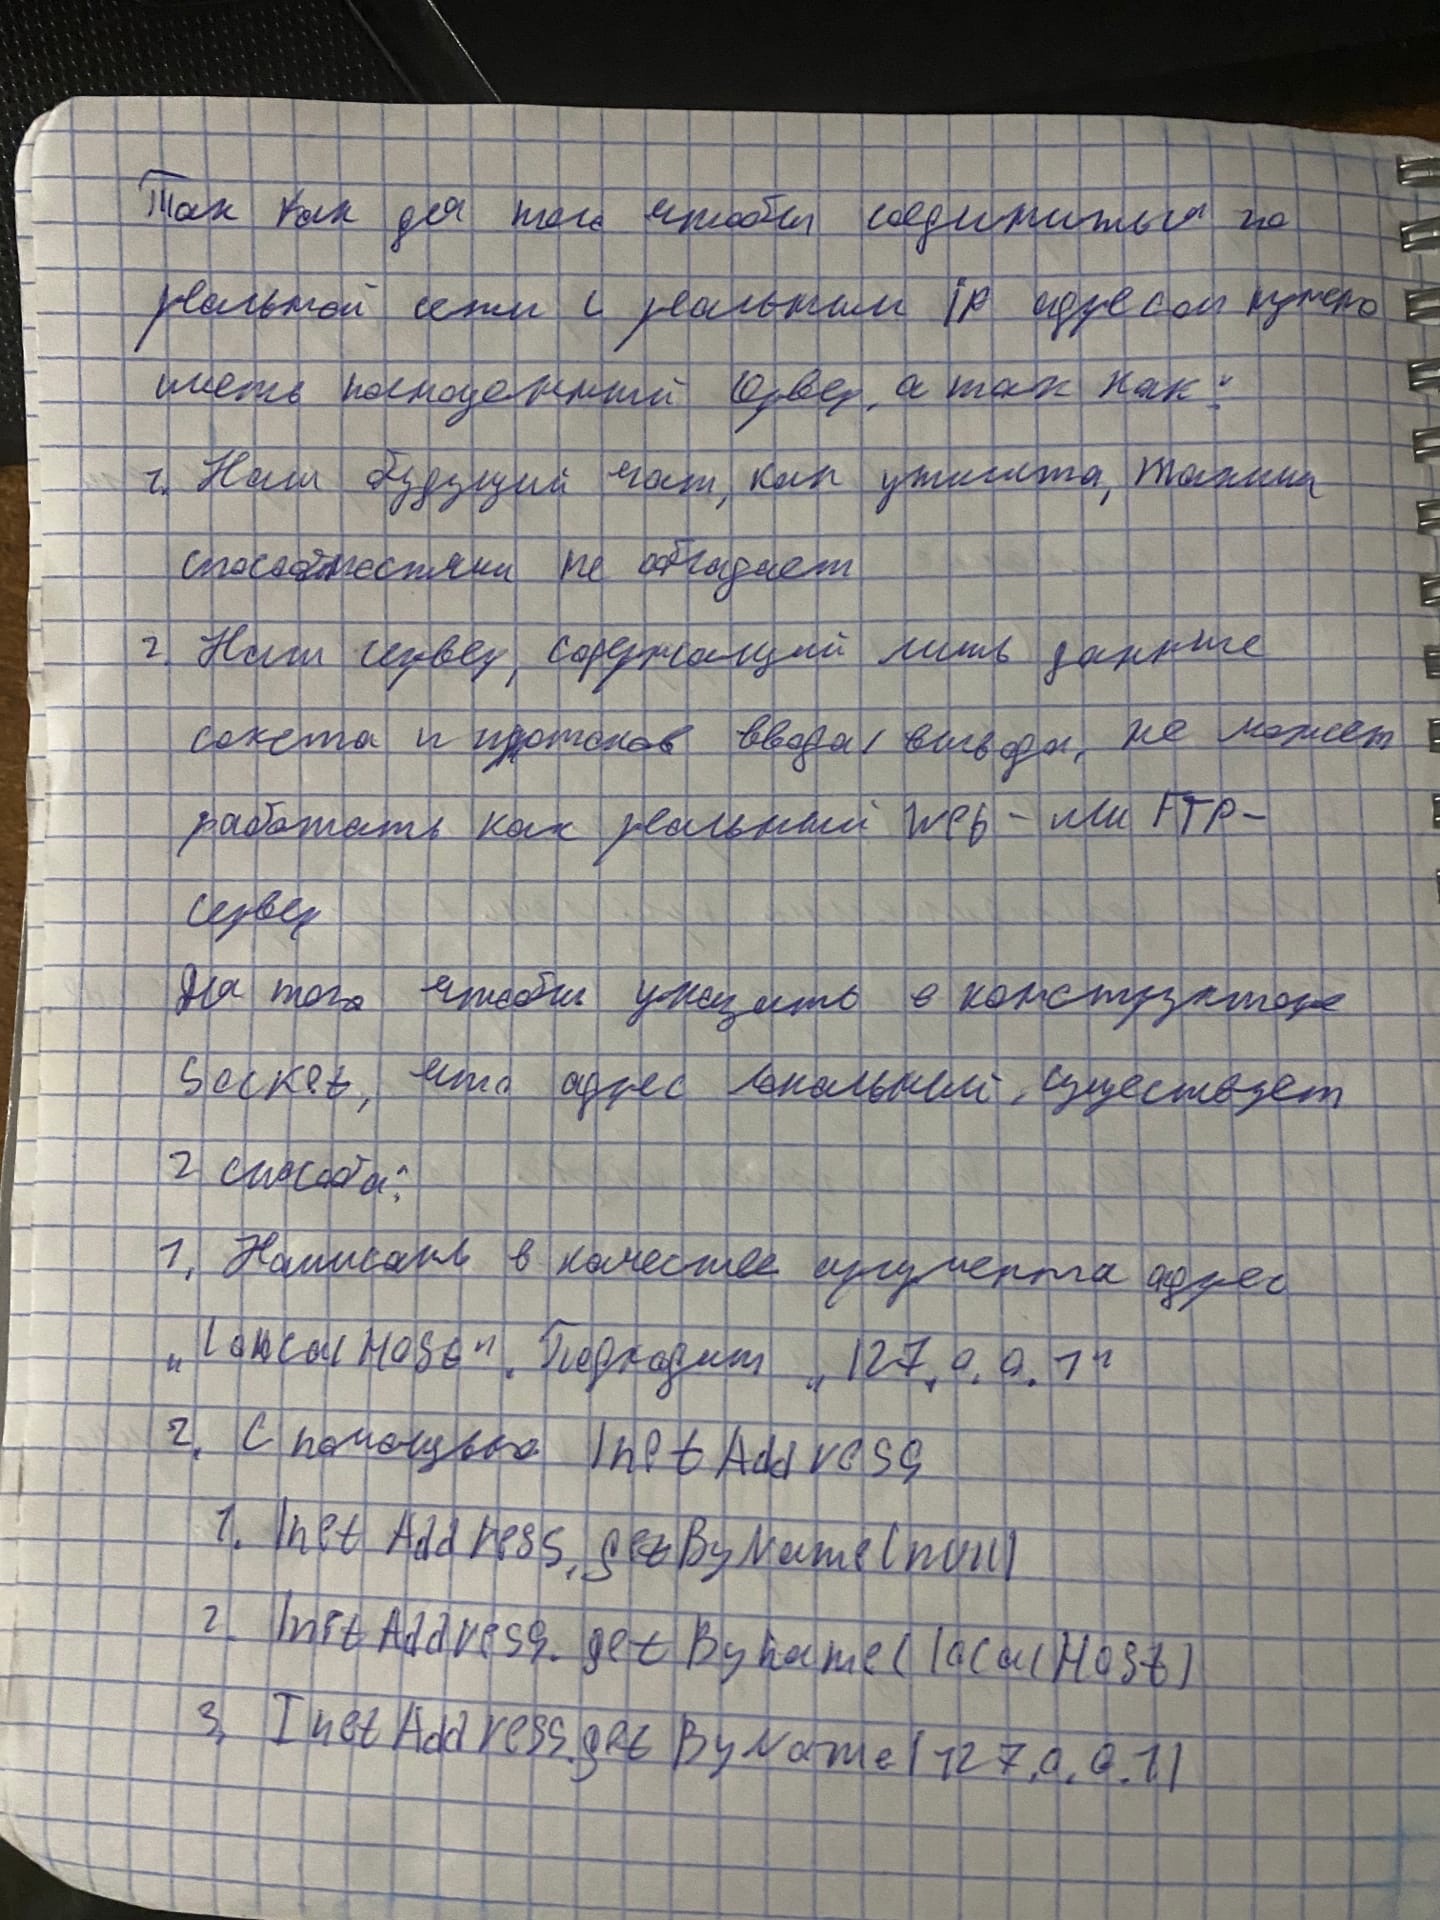 Так как для того чтобы соединиться по
реальной сети с реальным ip адресом нужно
иметь полноценный сервер, а так как:
1. Наш будущий чат, как утилита, такими
способностями не обладает
2. Наш сервер, содержащий лишь данные
сокета и потоков ввода/вывода, не может
работать как реальный Web- или FTP-
сервер
Для того чтобы указать в конструкторе
Socket, что адрес локальный, существует
2 способа:
1. Написать в качестве аргумента адрес
„localHost". Подходит „127.0.0.1"
2. С помощью InetAddress
1. InetAddress.getByName(null)
2. InetAddress.getByName(localHost)
3. InetAddress.getByName(127.0.0.1)